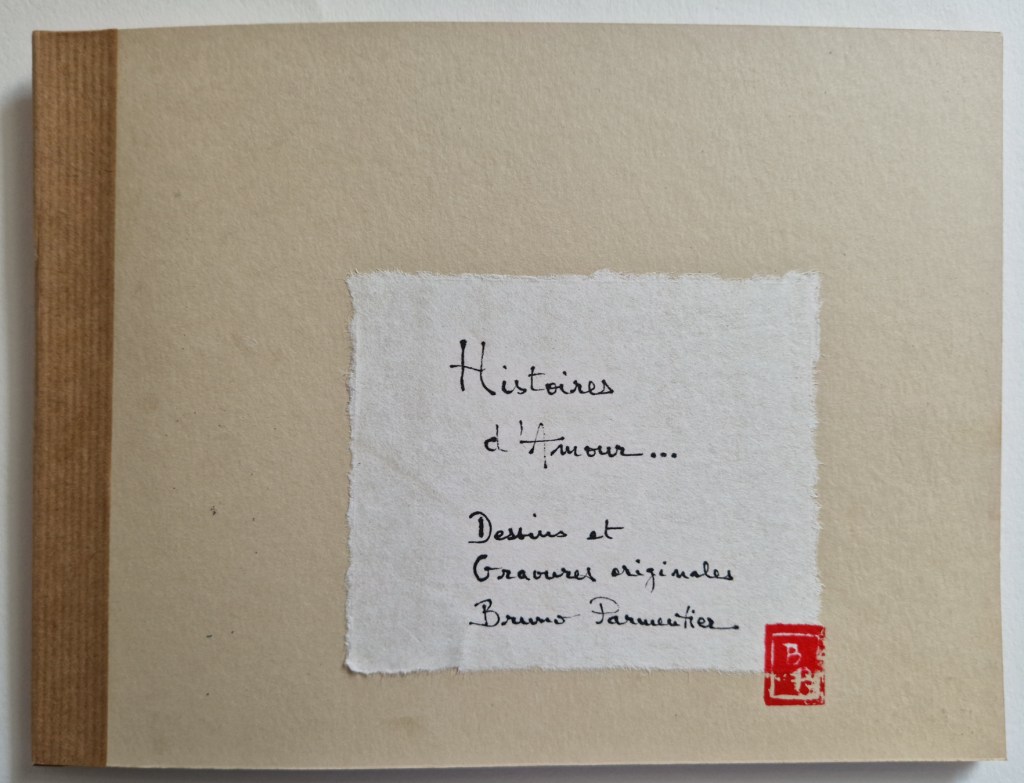 Histoires
d'Amour...
Dessins et
Gravures originales
Bruno Parmentier
B
P